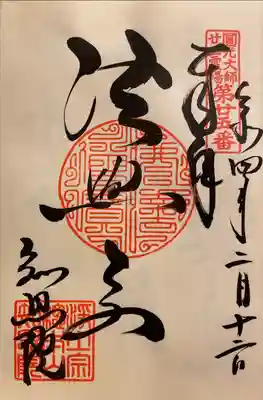 圓光大師
廿五霊場
第廿五番
奉拝
令和四年二月十二日
法然上人
知恩院